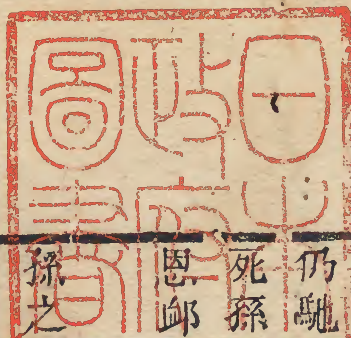 日本
政府
圖書
仍馳
死孫
恩卹
孫之